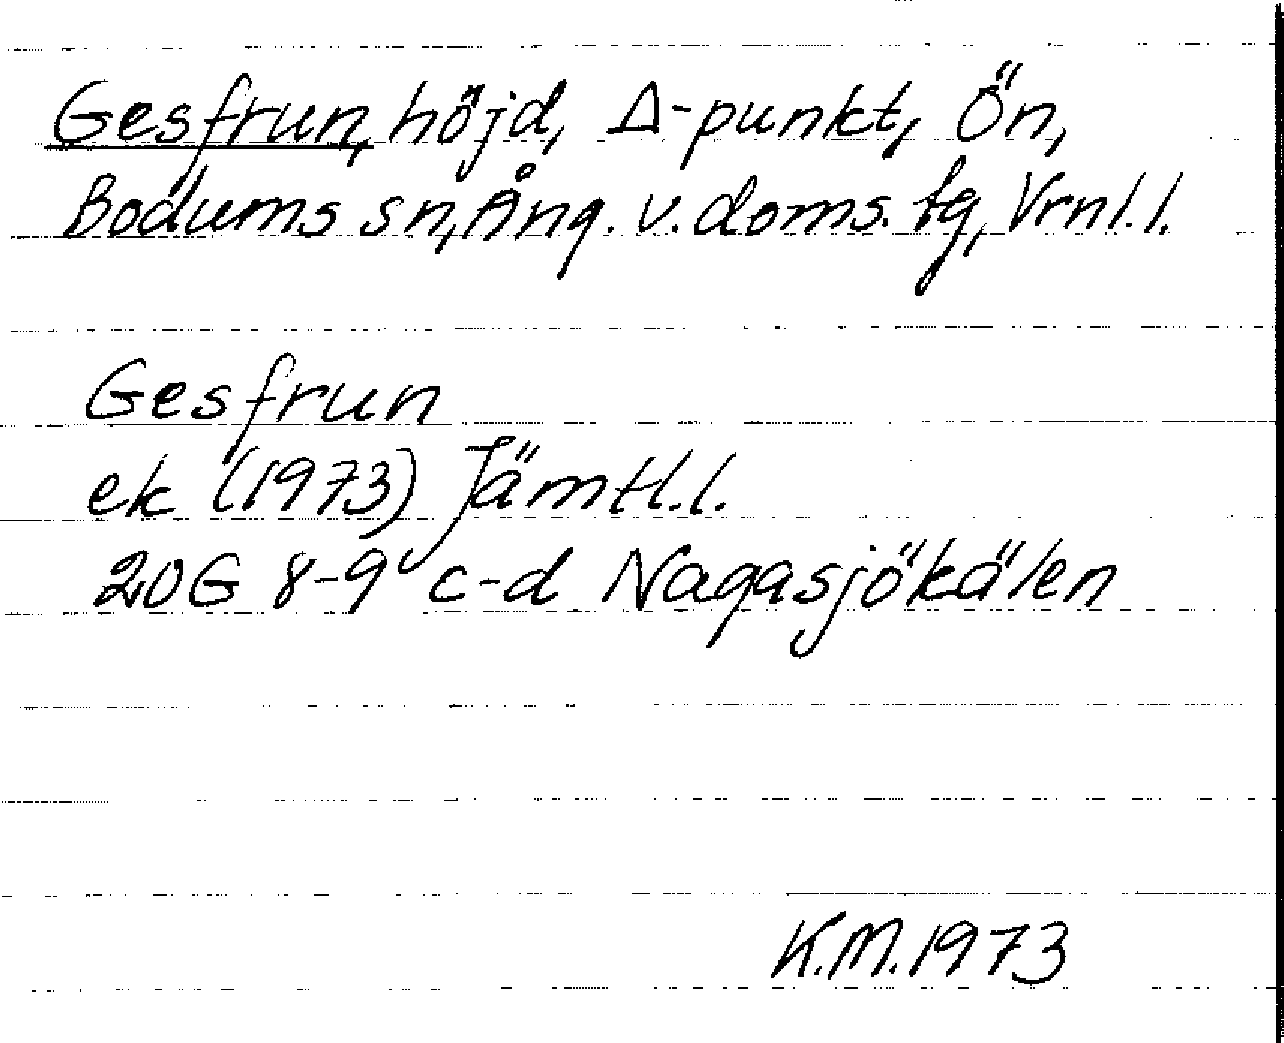 Gesfrun, höjd, Δ-punkt, Ön,
Bodums sn, Ång. v. doms. tg, Vrnl.l.
Gesfrun
ek (1973) Jämtl.l.
20G 8-9 c-d Nagasjökälen
K.M. 1973